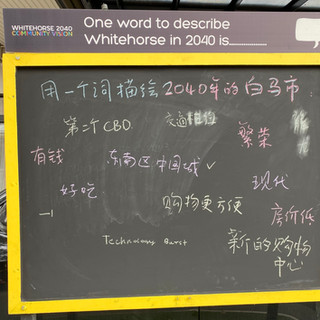 WHITEHORSE 2040
COMMUNITY VISION
One word to describe
Whitehorse in 2040 is..............
用一个词描绘2040年的白马市:
第二个CBD
交通
繁荣
有钱
东南区中国城✓
现代
好吃
购物更方便
房价低
新的购物
中心